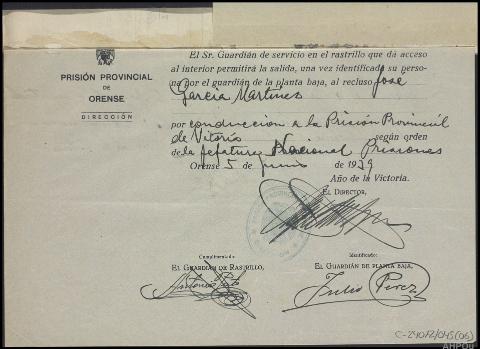 El Sr. Guardián de servicio en el rastrillo que da acceso
al interior permitirá la salida, una vez identificada su perso-
na por el guardián de la planta baja, al recluso José
García Martínes
PRISIÓN PROVINCIAL
DE
ORENSE
DIRECCIÓN
por conduccion a la Prisión Provincial
de Vitoria según orden
de la Jefatura Nacional Prisiones
Orense 5 de junio de 1939
Año de la Victoria.
EL DIRECTOR,
Cumplimentado:
EL GUARDIÁN DE RASTRILLO,
Antonio
Identificado:
EL GUARDIÁN DE PLANTA BAJA,
Julio Perez
C-24072/045(06)
AHPOU